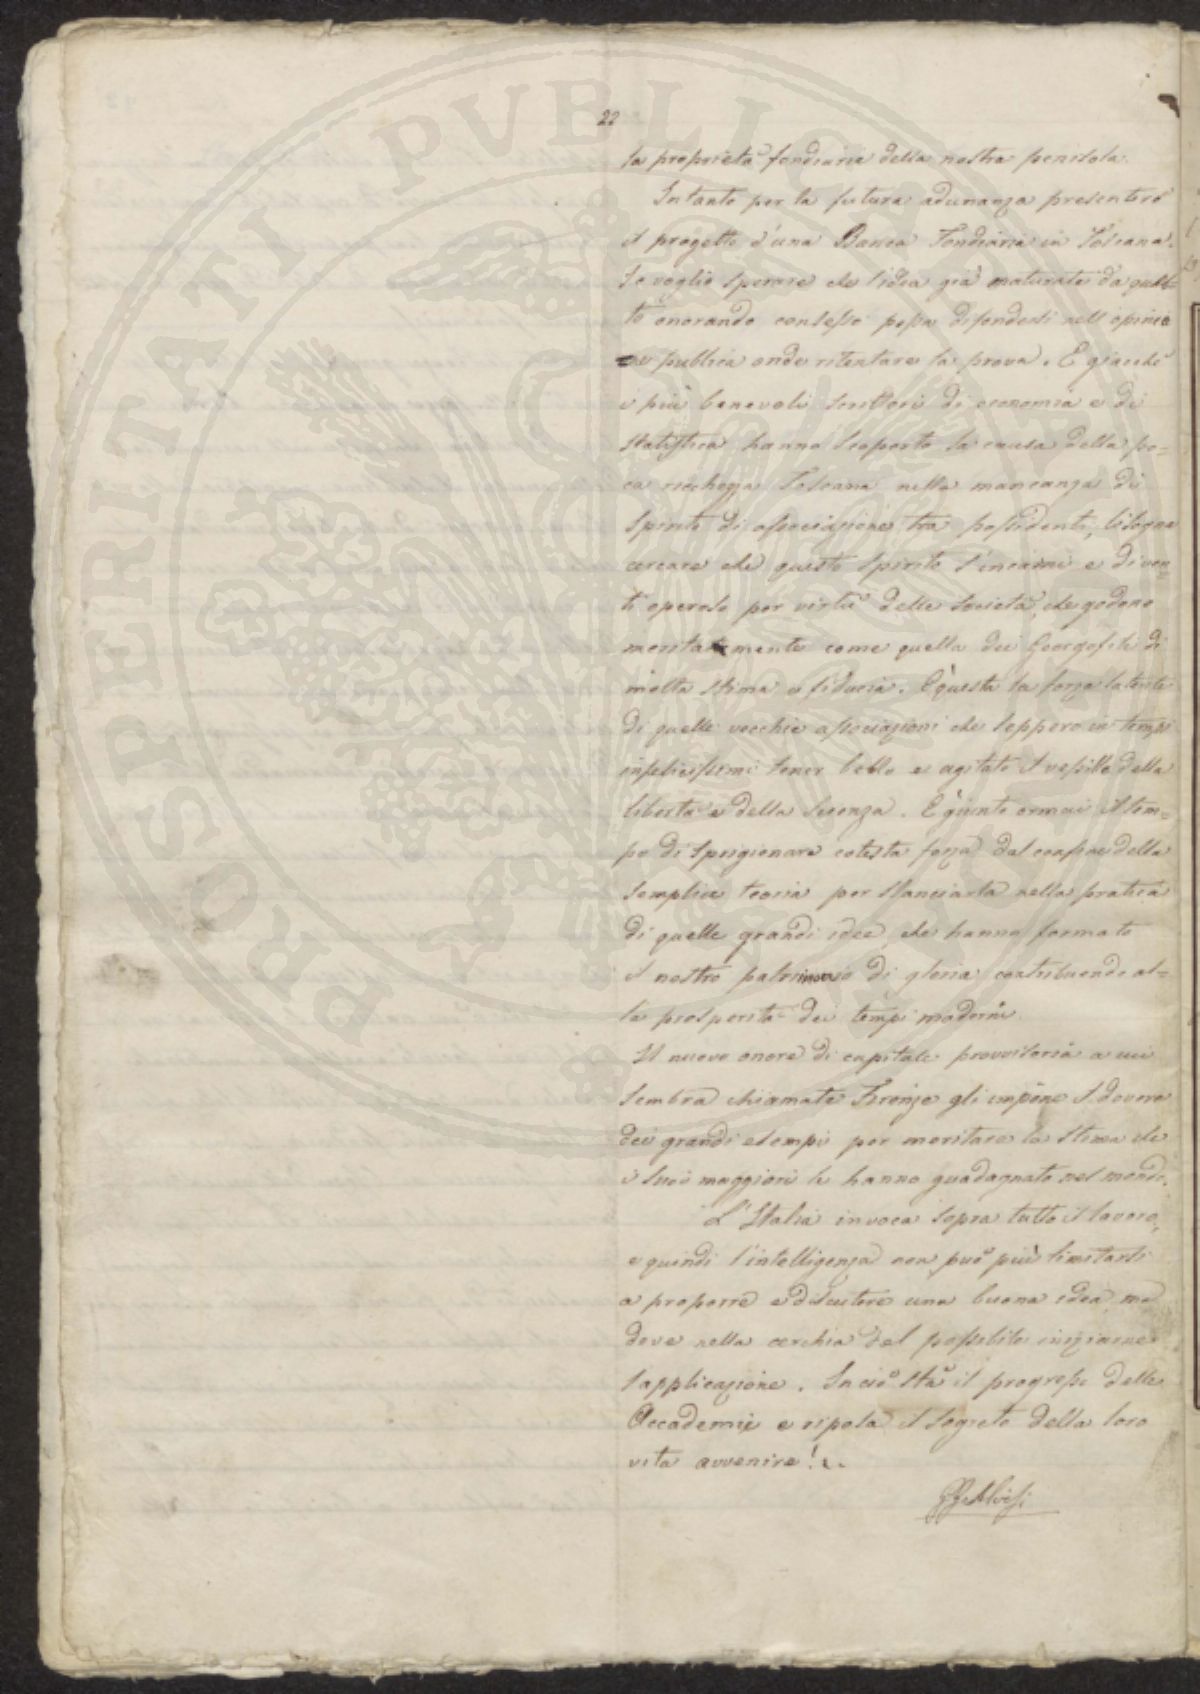 22
la proprietà fondiaria della nostra penisola.
Intanto per la futura adunanza presenterò
il progetto d'una Banca Fondiaria in Toscana.
Io voglio sperare che l'idea già maturata da ques-
to onorando consesso possa difondersi nell'opinio
ne publica onde ritentare la prova. E giacchè
i più benevoli scrittori di economia e di
statistica hanno scoperto la causa della po=
ca ricchezza Toscana nella mancanza di
spirito di associazione tra possidenti, bisogna
cercare che questo spirito s'incarni e diven=
ti operoso per virtù delle società, che godono
meritatamente come quella dei Georgofili di
molta stima e fiducia. È questa la forza latente
di quelle vecchie associazioni che seppero in tempi
infelicissimi tener bello e agitato il vessillo della
libertà e della scienza. È giunto ormai il tem=
po di sprigionare cotesta forza dal confine della
semplice teoria per slanciarla nella pratica
di quelle grandi idee, che hanno formato
il nostro patrimonio di gloria contribuendo al=
la prosperità dei tempi moderni.
Il nuovo onore di capitale provvisoria a cui
sembra chiamata Firenze gli impone il dovere
dei grandi esempi per meritare la stima che
i suoi maggiori le hanno guadagnato nel mondo.
L'Italia invoca sopra tutto il lavoro,
e quindi l'intelligenza non può più limitarsi
a proporre e discutere una buona idea, ma
deve nella cerchia del possibile iniziarne
l'applicazione. In ciò stà il progresso delle
Accademie e riposa il segreto della loro
vita avvenire!..
Alvisi
PROSPERITATI PVBLICAE